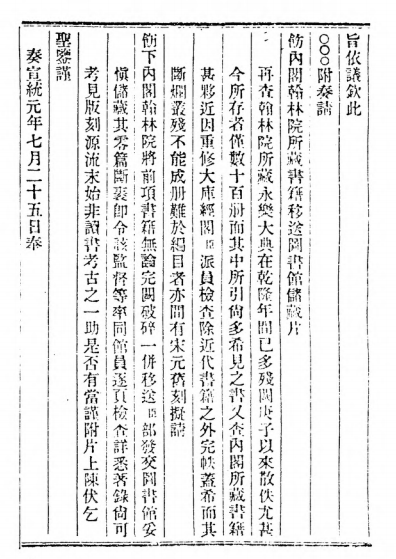 旨依議欽此
○○○附奏請
飭內閣翰林院所藏書籍移送圖書館儲藏片
再查翰林院所藏永樂大典在乾隆年間已多殘闕庚子以來散佚尤甚
今所存者僅數十百冊而其中所引尚多希見之書又查內閣所藏書籍
甚夥近因重修大庫經閣臣派員檢查除近代書籍之外完帙蓋希而其
斷爛叢殘不能成冊難於編目者亦間有宋元舊刻擬請
飭下內閣翰林院將前項書籍無論完闕破碎一併移送臣部發交圖書館妥
慎儲藏其零篇斷裘卽令該監督等率同館員逐頁檢查詳悉著錄尙可
考見版刻源流未始非讀書考古之一助是否有當謹附片上陳伏乞
聖鑒謹
奏宣統元年七月二十五日奉